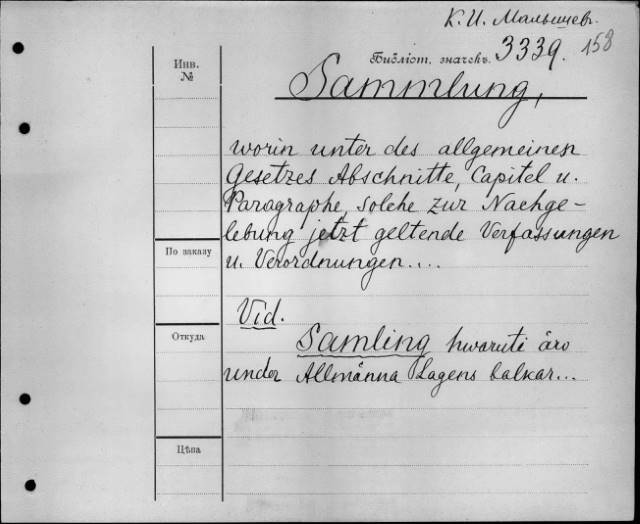 К. И. Малышев.
Библіот. значекъ. 3339. 158
Инв.
№
Sammlung,
worin unter des allgemeinen
Gesetzes Abschnitte, Capitel u.
Paragraphe, solche zur Nachge-
lebung jetzt geltende Verfassungen
По заказу
u. Verordnungen....
Vid.
Откуда
Samling hwaruti äro
under Allmänna Lagens balkar...
Цѣна